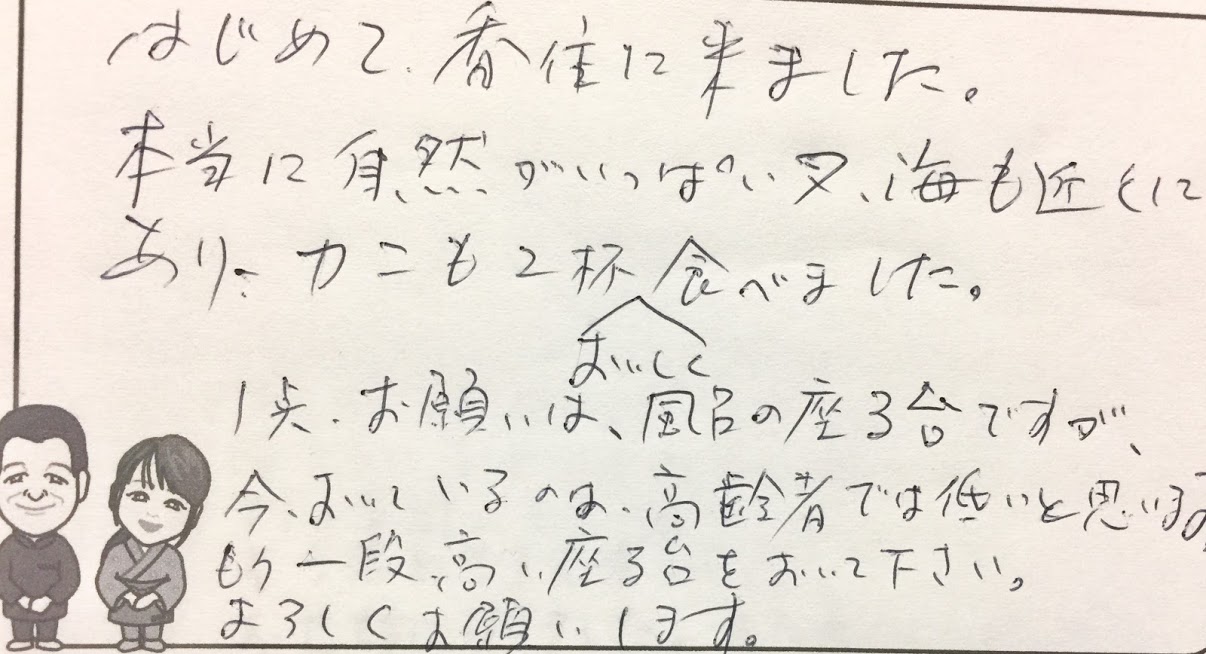 はじめて、香住に来ました。
本当に自然がいっぱい又、海も近くに
あり、カニも2杯食べました。
おいしく
1点、お願いは、風呂の座る台ですが、
今、おいているのは、高齢者では低いと思います
もう一段、高い座る台をおいて下さい。
よろしくお願いします。